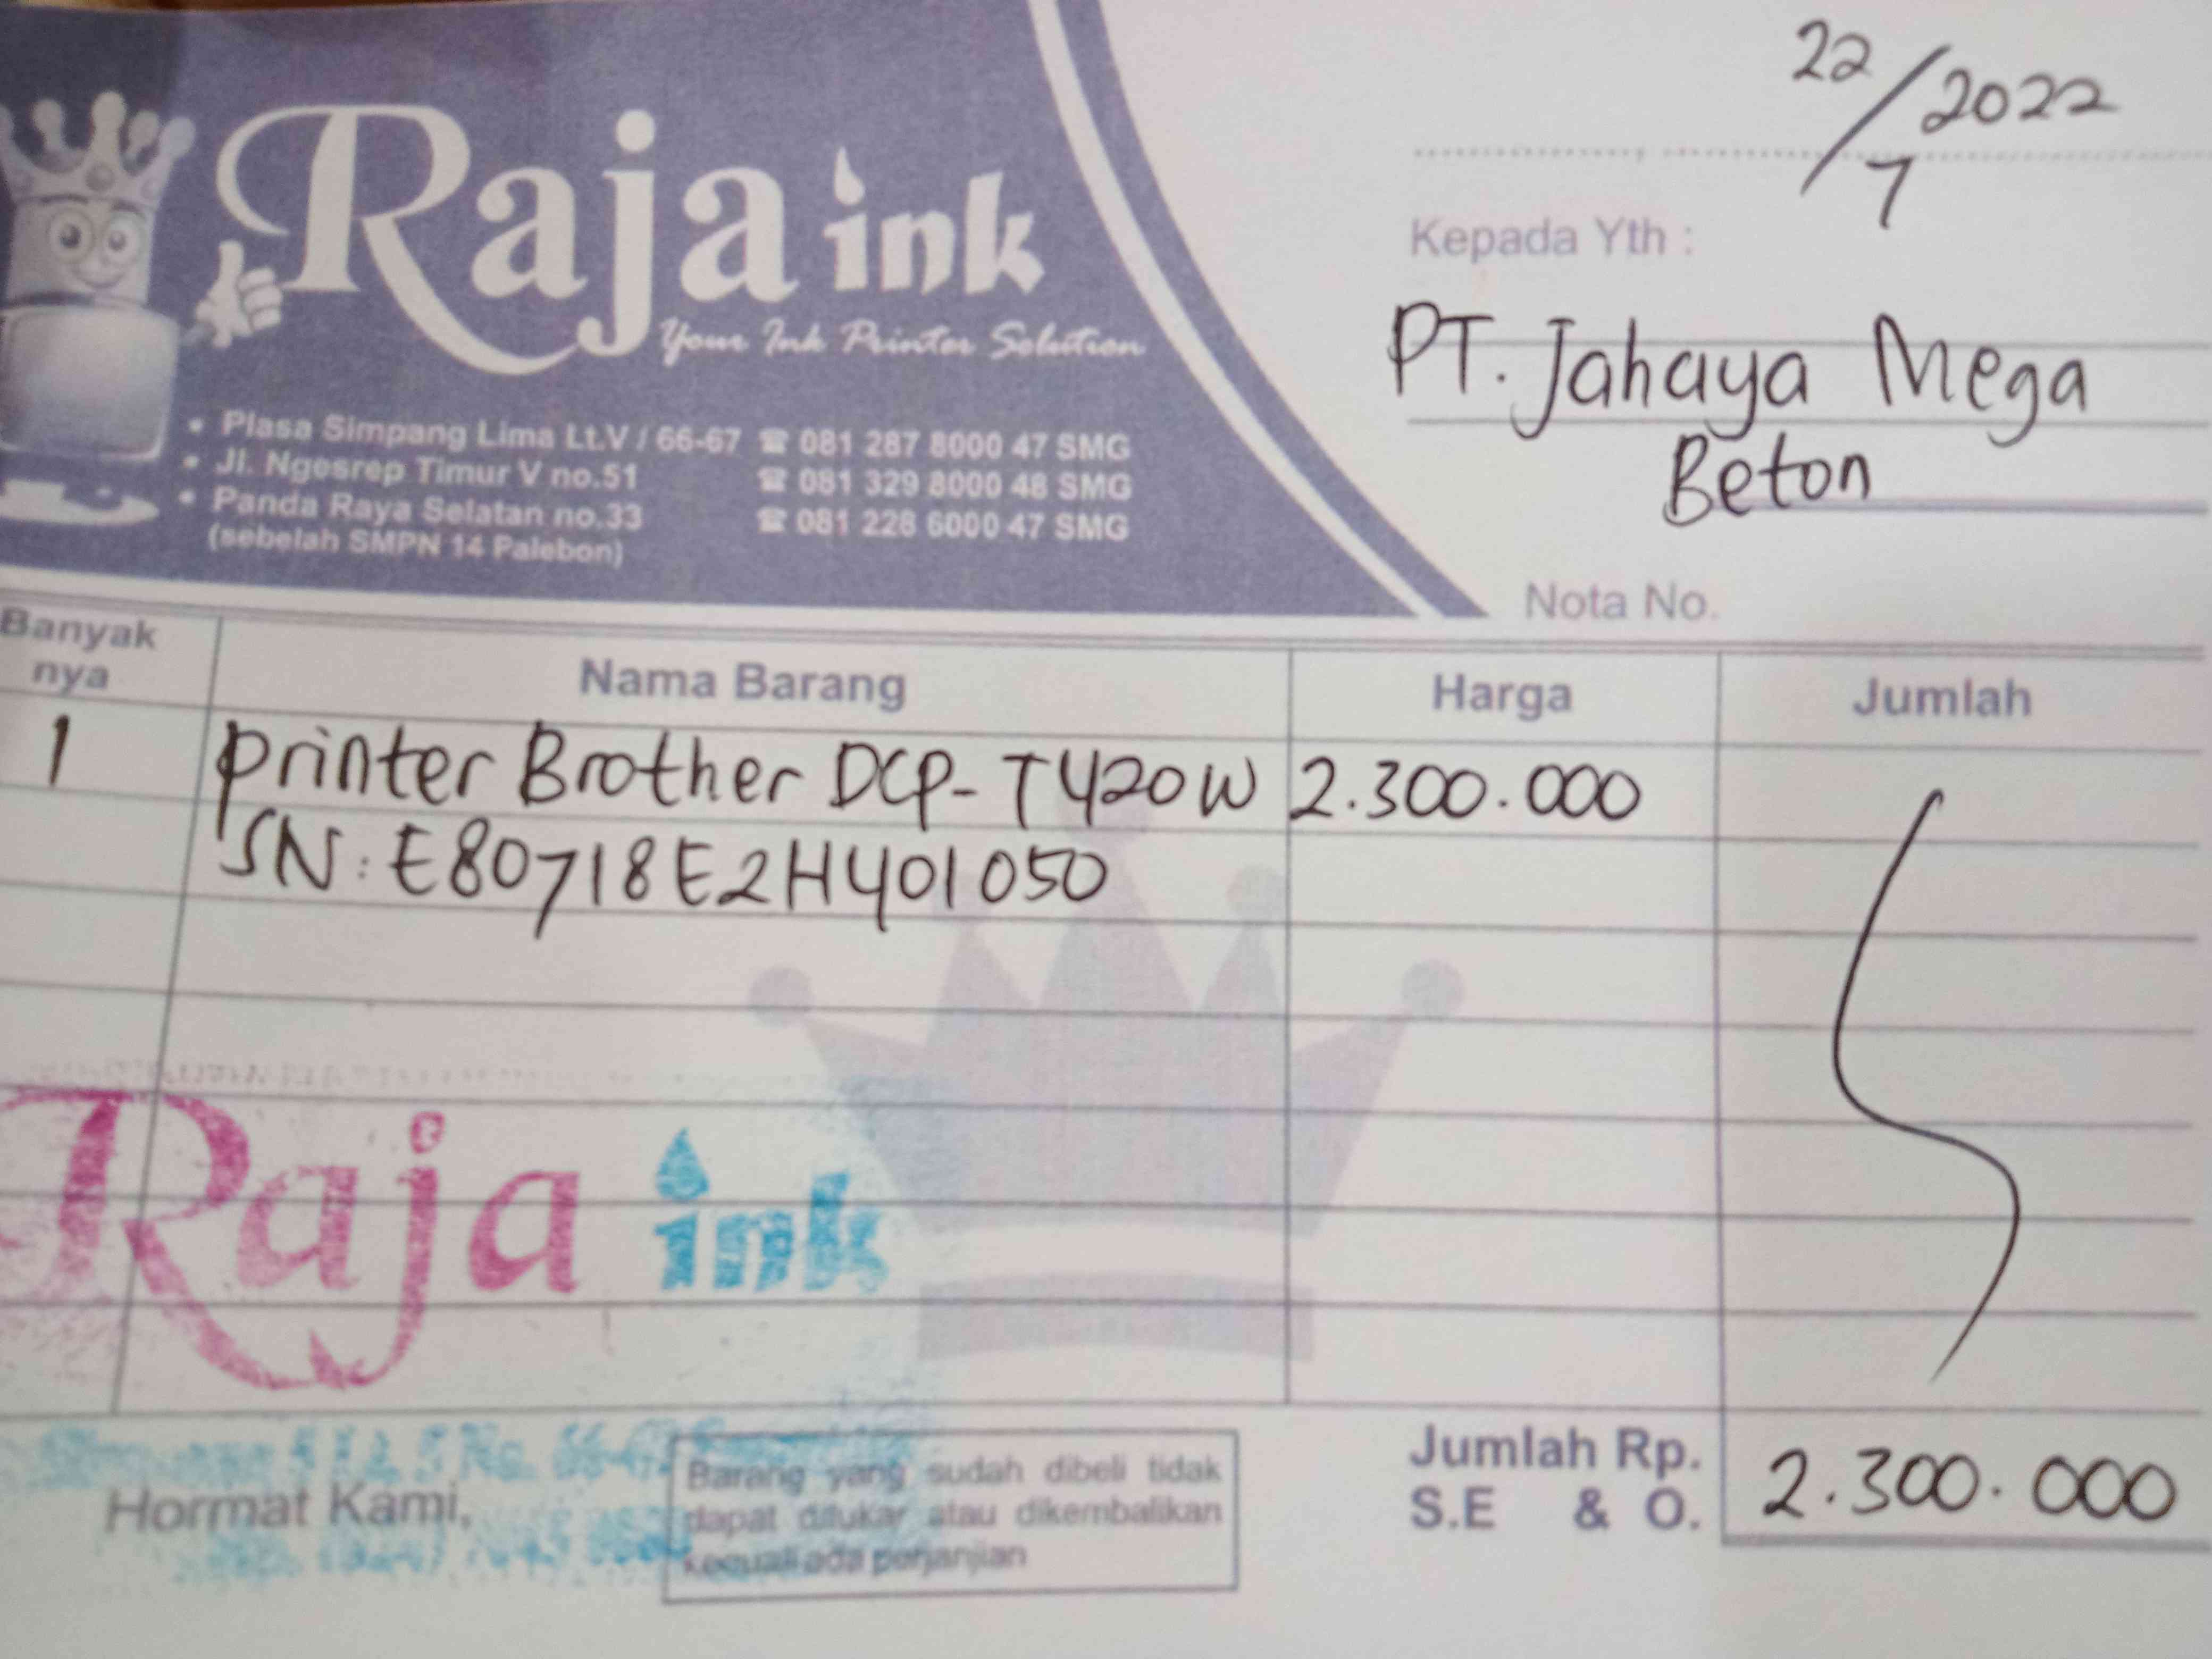 Raja ink
Your Ink Printer Solution
• Plasa Simpang Lima Lt.V / 66-67 ☎ 081 287 8000 47 SMG
• Jl. Ngesrep Timur V no.51 ☎ 081 329 8000 48 SMG
• Panda Raya Selatan no.33 ☎ 081 228 6000 47 SMG
(sebelah SMPN 14 Palebon)
22/7 2022
Kepada Yth :
PT. Jahaya Mega
Beton
Nota No.
Banyak nya Nama Barang Harga Jumlah
1 Printer Brother DCP-T420W 2.300.000
SN: E80718E2H401050
Raja ink
Hormat Kami,
Barang yang sudah dibeli tidak
dapat ditukar atau dikembalikan
kecuali ada perjanjian
Jumlah Rp.
S.E & O. 2.300.000